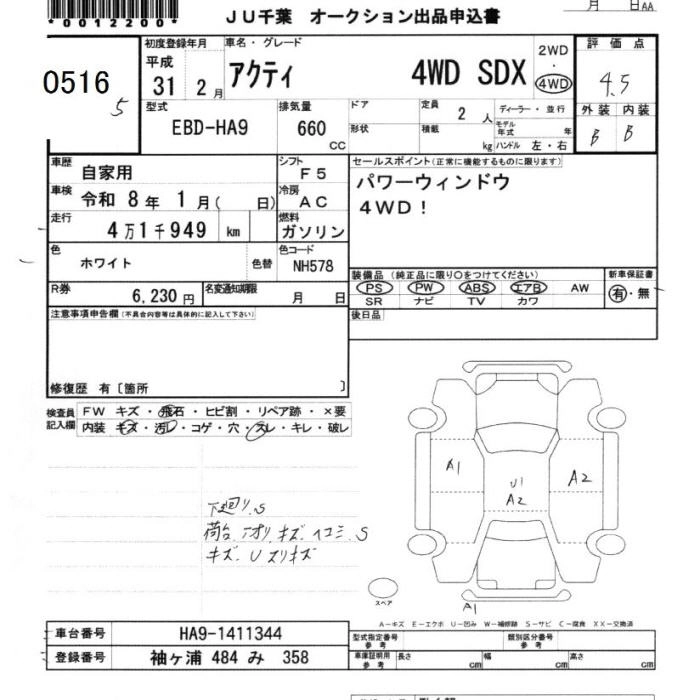 *0012200*
JU千葉 オークション出品申込書
月 日AA
0516
5
初度登録年月
平成
31 2月
車名・グレード
アクティ 4WD SDX
2WD
・
4WD
評価点
4.5
型式
EBD-HA9
排気量
660
CC
ドア
形状
定員 2 人
積載 kg
ディーラー・並行
モデル年式 年
ハンドル 左・右
外装 内装
B B
車歴
自家用
シフト
F5
車検
令和 8年 1月( 日)
冷房
AC
走行
4万1千949 km
燃料
ガソリン
色
ホワイト
色替
色コード
NH578
R券
6,230円
名変通知期限
月 日
セールスポイント(正常に機能するものに限ります)
パワーウィンドウ
4WD!
装備品 (純正品に限り〇をつけてください)
PS PW ABS エアB AW
SR ナビ TV カワ
新車保証書
有・無
後日品
注意事項申告欄(不具合内容等は具体的に記入して下さい)
修復歴 有〔箇所 〕
検査員記入欄
FW キズ・飛石・ヒビ割・リペア跡・×要
内装 キズ・汚レ・コゲ・穴・スレ・キレ・破レ
下廻り.S
荷台.アオリ.キズ.ヘコミ.S
キズ.U スリキズ
A1
U1
A2
A2
スペア
A1
A−キズ E−エクボ U−凹み W−補修跡 S−サビ C−腐食 XX−交換済
車台番号 HA9-1411344
登録番号 袖ヶ浦 484 み 358
型式指定番号
参考
類別区分番号
参考
車庫証明用
参考
長さ cm
幅 cm
高さ cm